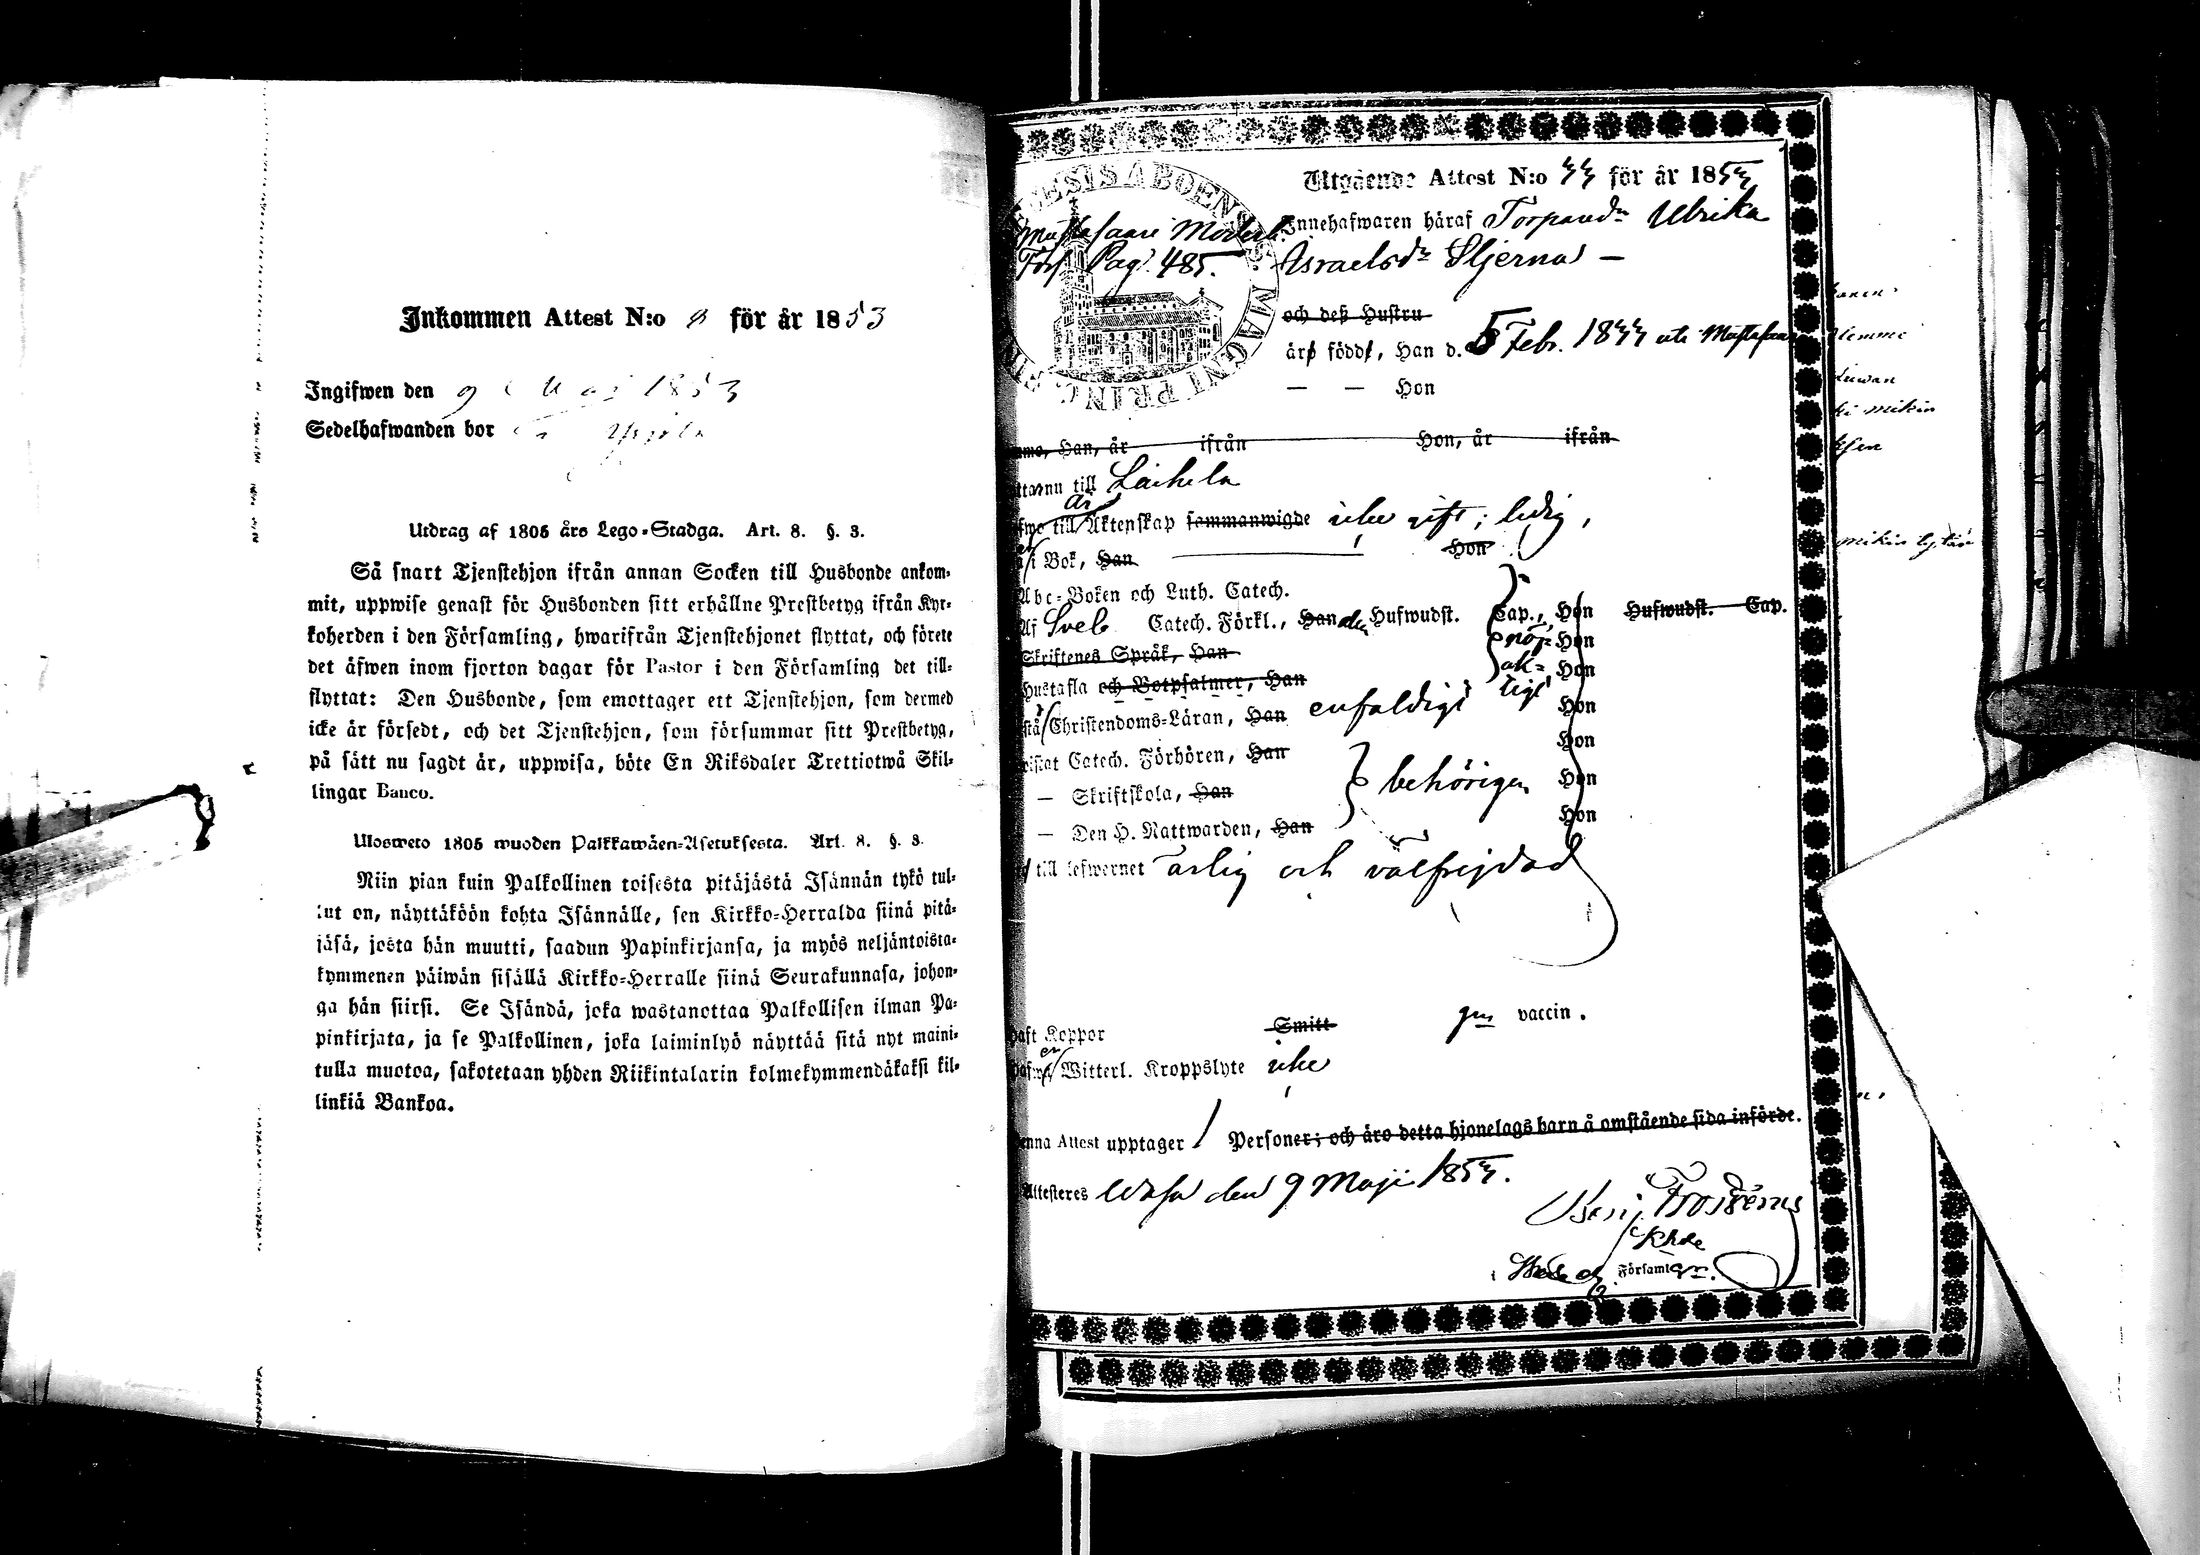 Inkommen Attest N:o 9 för år 1853
Ingifwen den 9 Maj 1853
Sedelhafwanden bor
Utdrag af 1805 års Lego-Stadga. Art. 8. §. 3.
Så snart Tjenstehjon ifrån annan Socken till Husbonde ankom-
mit, uppwise genast för Husbonden sitt erhållne Prestbetyg ifrån Kyr-
koherden i den Församling, hwarifrån Tjenstehjonet flyttat, och förete
det äfwen inom fjorton dagar för Pastor i den Församling det till-
flyttat: Den Husbonde, som emottager ett Tjenstehjon, som dermed
icke är försedt, och det Tjenstehjon, som försummar sitt Prestbetyg,
på sätt nu sagdt är, uppwisa, böte En Riksdaler Trettiotwå Skil-
lingar Banco.
Ulosweto 1805 wuoden Palkkawäen-Asetuksesta. Art. 8. §. 3.
Niin pian kuin Palkollinen toisesta pitäjästä Isännän tykö tul-
lut on, näyttäköön kohta Isännälle, sen Kirkko-Herralda siinä pitä-
jäsä, josta hän muutti, saadun Papinkirjansa, ja myös neljäntoista-
kymmenen päiwän sisällä Kirkko-Herralle siinä Seurakunnasa, johon-
ga hän siirsi. Se Isändä, joka wastanottaa Palkollisen ilman Pa-
pinkirjata, ja se Palkollinen, joka laiminlyö näyttää sitä nyt maini-
tulla muotoa, sakotetaan yhden Riikintalarin kolmekymmendäkaksi kil-
linkiä Bankoa.
Utgående Attest N:o 33 för år 1853
Mustasaari Moderk.
Förs. Pag. 485.
Innehafwaren häraf Torpared:r Ulrika
Israelsd:r Stjerna —
och deß Hustru
är född, Han d. 5 Febr. 1833 uti Mustasaari
— — Hon
Han, år ifrån Hon, år ifrån
nu till Laihela
är
till Äktenskap sammanwigde icke gift; ledig,
i Bok, Han Hon
Abc-Boken och Luth. Catech.
Af Sveb. Catech. Förkl., Han Hufwudst. Cap., Hon Hufwudst. Cap.
nöj- Hon
Skriftenes Språk, Han ak- Hon
Hustafla och Botpsalmer, Han tigt
Christendoms-Läran, Han enfaldigt Hon
Catech. Förhören, Han Hon
— Skriftskola, Han behörigen Hon
— Den H. Nattwarden, Han Hon
till lefwernet ärlig och välfrejdad
haft Koppor Smitt gm vaccin.
Witterl. Kroppslyte icke
Denna Attest upptager 1 Personer; och äro detta hjonelags barn å omstående sida införde.
Attesteres Wasa den 9 Maji 1853.
Benj. Frosterus
Khde
Församl